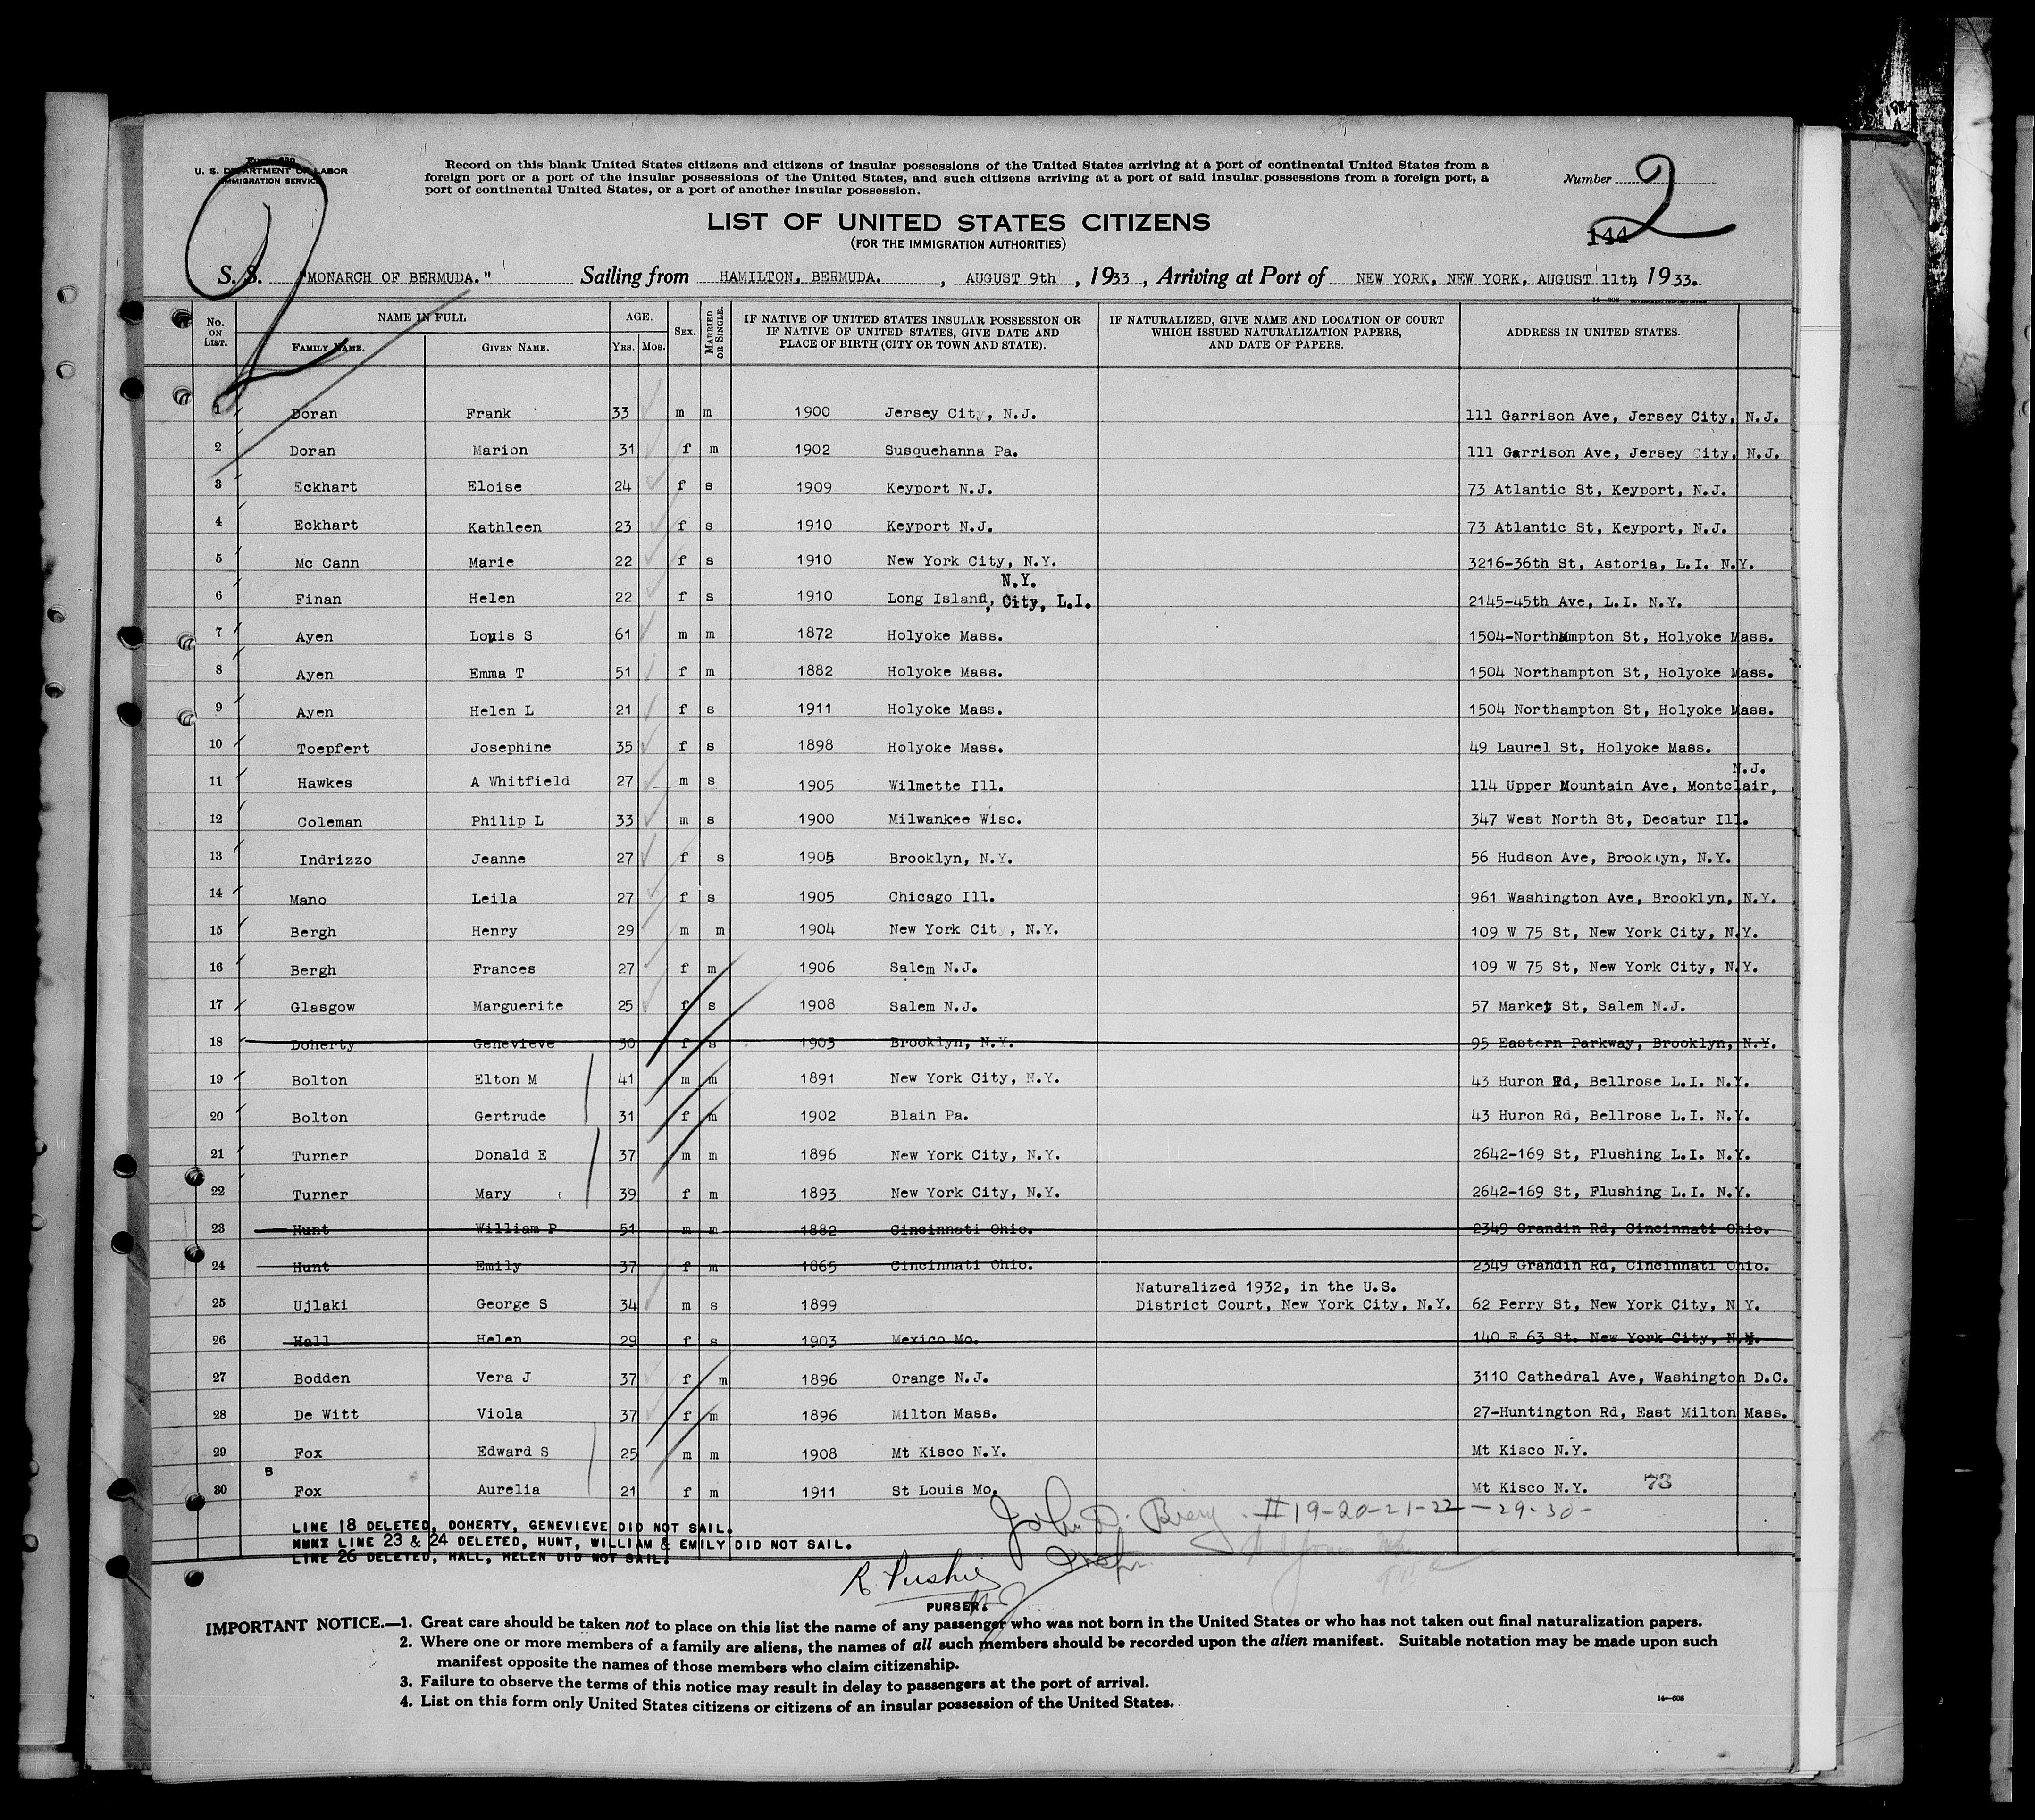 Form 630
U. S. DEPARTMENT OF LABOR
IMMIGRATION SERVICE
Record on this blank United States citizens and citizens of insular possessions of the United States arriving at a port of continental United States from a
foreign port or a port of the insular possessions of the United States, and such citizens arriving at a port of said insular possessions from a foreign port, a
port of continental United States, or a port of another insular possession.
Number 2
144
LIST OF UNITED STATES CITIZENS
(FOR THE IMMIGRATION AUTHORITIES)
S. S. "MONARCH OF BERMUDA." Sailing from HAMILTON, BERMUDA. , AUGUST 9th , 1933 , Arriving at Port of NEW YORK, NEW YORK, AUGUST 11th, 1933.
No. ON LIST. NAME IN FULL AGE. SEX. MARRIED OR SINGLE. IF NATIVE OF UNITED STATES INSULAR POSSESSION OR IF NATIVE OF UNITED STATES, GIVE DATE AND PLACE OF BIRTH (CITY OR TOWN AND STATE). IF NATURALIZED, GIVE NAME AND LOCATION OF COURT WHICH ISSUED NATURALIZATION PAPERS, AND DATE OF PAPERS. ADDRESS IN UNITED STATES.
FAMILY NAME. GIVEN NAME. YRS. MOS.
1 Doran Frank 33 m m 1900 Jersey City, N.J. 111 Garrison Ave, Jersey City, N.J.
2 Doran Marion 31 f m 1902 Susquehanna Pa. 111 Garrison Ave, Jersey City, N.J.
3 Eckhart Eloise 24 f s 1909 Keyport N.J. 73 Atlantic St, Keyport, N.J.
4 Eckhart Kathleen 23 f s 1910 Keyport N.J. 73 Atlantic St, Keyport, N.J.
5 Mc Cann Marie 22 f s 1910 New York City, N.Y. 3216-36th St, Astoria, L.I. N.Y.
N.Y.
6 Finan Helen 22 f s 1910 Long Island, City, L.I. 2145-45th Ave, L.I. N.Y.
7 Ayen Louis S 61 m m 1872 Holyoke Mass. 1504-Northampton St, Holyoke Mass.
8 Ayen Emma T 51 f m 1882 Holyoke Mass. 1504 Northampton St, Holyoke Mass.
9 Ayen Helen L 21 f s 1911 Holyoke Mass. 1504 Northampton St, Holyoke Mass.
10 Toepfert Josephine 35 f s 1898 Holyoke Mass. 49 Laurel St, Holyoke Mass.
N.J.
11 Hawkes A Whitfield 27 m s 1905 Wilmette Ill. 114 Upper Mountain Ave, Montclair,
12 Coleman Philip L 33 m s 1900 Milwankee Wisc. 347 West North St, Decatur Ill.
13 Indrizzo Jeanne 27 f s 1905 Brooklyn, N.Y. 56 Hudson Ave, Brooklyn, N.Y.
14 Mano Leila 27 f s 1905 Chicago Ill. 961 Washington Ave, Brooklyn, N.Y.
15 Bergh Henry 29 m m 1904 New York City, N.Y. 109 W 75 St, New York City, N.Y.
16 Bergh Frances 27 f m 1906 Salem N.J. 109 W 75 St, New York City, N.Y.
17 Glasgow Marguerite 25 f s 1908 Salem N.J. 57 Market St, Salem N.J.
18 Doherty Genevieve 30 f s 1903 Brooklyn, N.Y. 95 Eastern Parkway, Brooklyn, N.Y.
19 Bolton Elton M 41 m m 1891 New York City, N.Y. 43 Huron Rd, Bellrose L.I. N.Y.
20 Bolton Gertrude 31 f m 1902 Blain Pa. 43 Huron Rd, Bellrose L.I. N.Y.
21 Turner Donald E 37 m m 1896 New York City, N.Y. 2642-169 St, Flushing L.I. N.Y.
22 Turner Mary 39 f m 1893 New York City, N.Y. 2642-169 St, Flushing L.I. N.Y.
23 Hunt William P 51 m m 1882 Cincinnati Ohio. 2349 Grandin Rd, Cincinnati Ohio.
24 Hunt Emily 37 f m 1865 Cincinnati Ohio. 2349 Grandin Rd, Cincinnati Ohio.
Naturalized 1932, in the U.S.
25 Ujlaki George S 34 m s 1899 District Court, New York City, N.Y. 62 Perry St, New York City, N.Y.
26 Hall Helen 29 f s 1903 Mexico Mo. 140 E 63 St. New York City, N.Y.
27 Bodden Vera J 37 f m 1896 Orange N.J. 3110 Cathedral Ave, Washington D.C.
28 De Witt Viola 37 f m 1896 Milton Mass. 27-Huntington Rd, East Milton Mass.
29 Fox Edward S 25 m m 1908 Mt Kisco N.Y. Mt Kisco N.Y.
B
30 Fox Aurelia 21 f m 1911 St Louis Mo. Mt Kisco N.Y. 73
John D. #19-20-21-22-29-30-
LINE 18 DELETED, DOHERTY, GENEVIEVE DID NOT SAIL.
LINE 23 & 24 DELETED, HUNT, WILLIAM & EMILY DID NOT SAIL.
LINE 26 DELETED, HALL, HELEN DID NOT SAIL.
Inspr.
R.
PURSER.
IMPORTANT NOTICE.—1. Great care should be taken not to place on this list the name of any passenger who was not born in the United States or who has not taken out final naturalization papers.
2. Where one or more members of a family are aliens, the names of all such members should be recorded upon the alien manifest. Suitable notation may be made upon such
manifest opposite the names of those members who claim citizenship.
3. Failure to observe the terms of this notice may result in delay to passengers at the port of arrival.
4. List on this form only United States citizens or citizens of an insular possession of the United States.
14—608